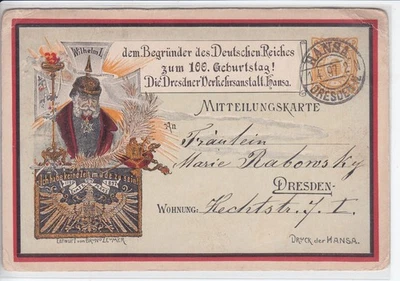 Wilhelm I.
dem Begründer des Deutschen Reiches
zum 100. Geburtstag!
Die Dresdner Verkehrsanstalt Hansa.
HANSA
1.4.97
DRESDEN
MITTEILUNGSKARTE
An
Fräulein
Marie Rabowsky
DRESDEN-
WOHNUNG: Hechtstr. 7. I.
Ich habe keine Zeit müde zu sein!
DRUCK der HANSA.